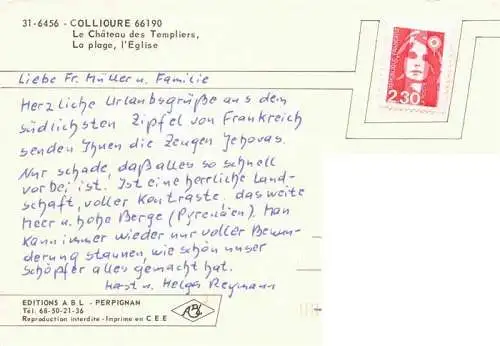 31-6456 - COLLIOURE 66190
Le Château des Templiers,
La plage, l'Eglise
2,30
Liebe Fr. Müller u. Familie
Herzliche Urlaubsgrüße aus dem
südlichsten Zipfel von Frankreich
senden Ihnen die Zeugen Jehovas.
Nur schade, daß alles so schnell
vorbei ist! Ist eine herrliche Land-
schaft, voller Kontraste. das weite
Meer u. hohe Berge (Pyrenäen). Man
kann immer wieder nur voller Bewun-
derung staunen, wie schön unser
Schöpfer alles gemacht hat.
Horst u. Helga Reymann
EDITIONS A B L - PERPIGNAN
Tél. 68-50-21-36
Reproduction interdite - Imprimé en C.E.E